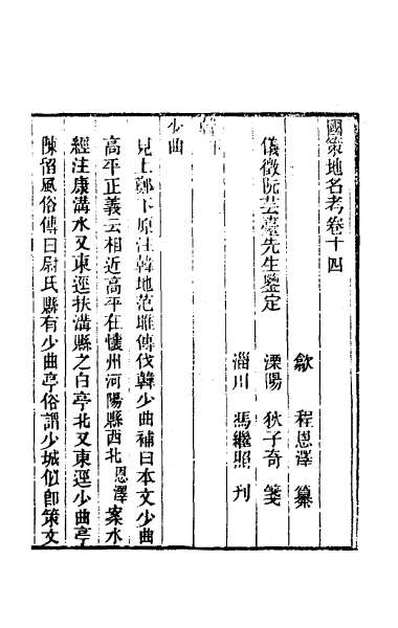 國策地名考卷十四
歙 程恩澤 纂
儀徵阮芸臺先生鑒定
溧陽 狄子奇 箋
淄川 馮繼照 刋
韓下
少曲
見上鄭下原注韓地范雎傳伐韓少曲補曰本文少曲
高平正義云相近高平在懷州河陽縣西北 恩澤案水
經注康溝水又東逕扶溝縣之白亭北又東逕少曲亭
陳留風俗傳曰尉氏縣有少曲亭俗謂少城似卽策文